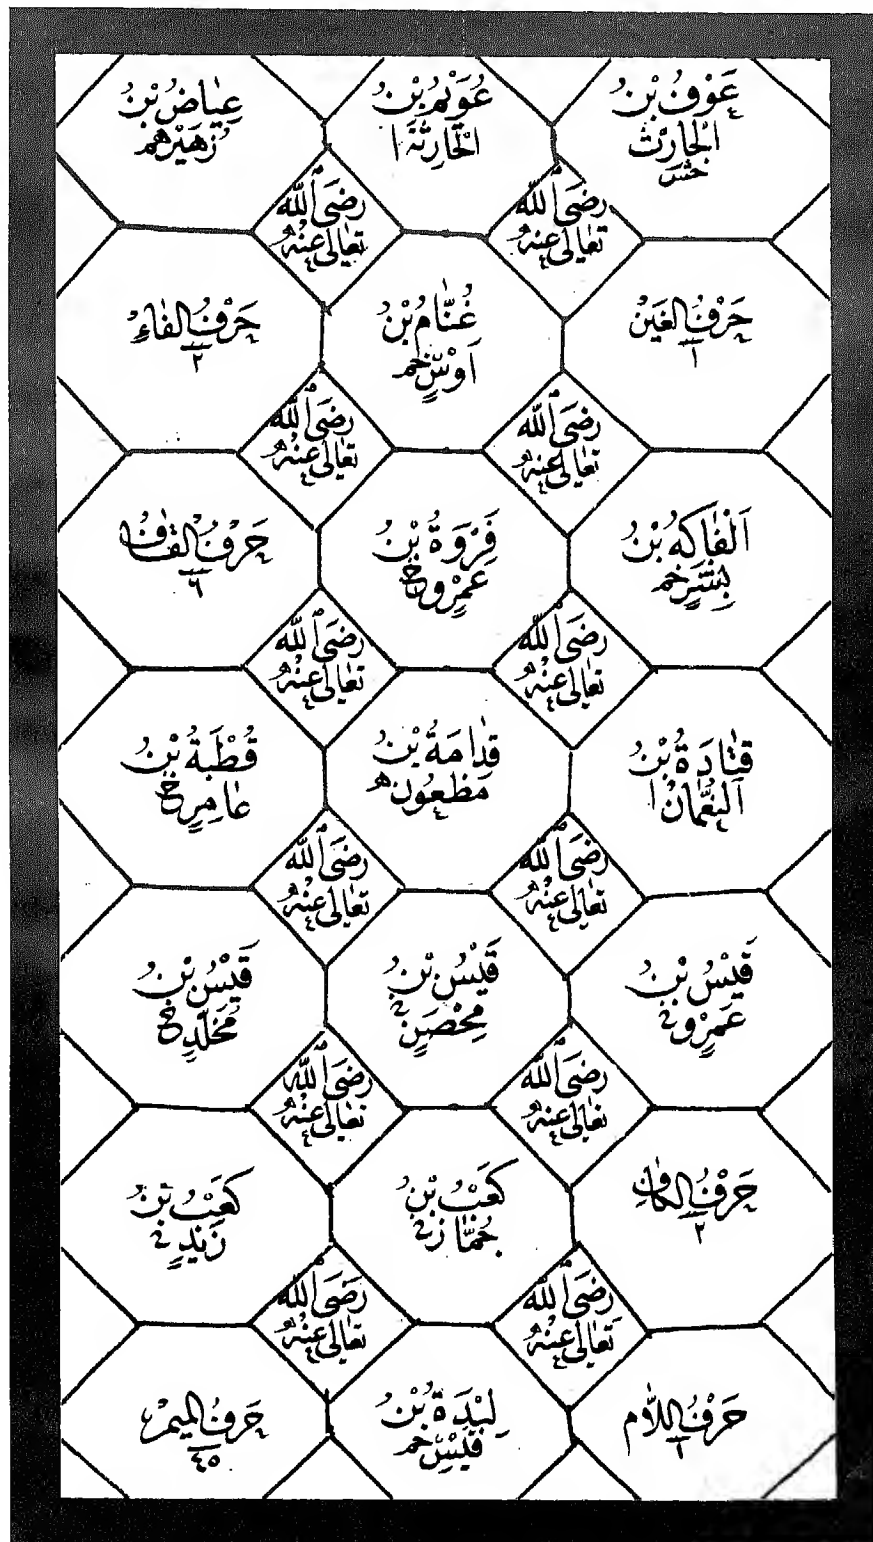 عَوْفُ بْنُ
الْحَارِثِ
عُوَيْمُ بْنُ
الْحَارِثَةِ ا
عِيَاضُ بْنُ
زُهَيْرٍ
رَضِيَ اللّٰهُ
تَعَالٰى عَنْهُ
رَضِيَ اللّٰهُ
تَعَالٰى عَنْهُ
حَرْفُ الْغَيْنِ
١
غُنَّامُ بْنُ
اَوْسٍ
حَرْفُ الْفَاءِ
٢
رَضِيَ اللّٰهُ
تَعَالٰى عَنْهُ
رَضِيَ اللّٰهُ
تَعَالٰى عَنْهُ
اَلْفَاكِهُ بْنُ
بِشْرٍ
فَرْوَةُ بْنُ
عَمْرٍو
حَرْفُ الْقَافِ
٦
رَضِيَ اللّٰهُ
تَعَالٰى عَنْهُ
رَضِيَ اللّٰهُ
تَعَالٰى عَنْهُ
قَتَادَةُ بْنُ
النُّعْمَانْ ا
قُدَامَةُ بْنُ
مَظْعُونٍ
قُطْبَةُ بْنُ
عَامِرٍ
رَضِيَ اللّٰهُ
تَعَالٰى عَنْهُ
رَضِيَ اللّٰهُ
تَعَالٰى عَنْهُ
قَيْسُ بْنُ
عَمْرٍو
قَيْسُ بْنُ
مِحْصَنٍ
قَيْسُ بْنُ
مُخَلَّدٍ
رَضِيَ اللّٰهُ
تَعَالٰى عَنْهُ
رَضِيَ اللّٰهُ
تَعَالٰى عَنْهُ
حَرْفُ الْكَافِ
٢
كَعْبُ بْنُ
جُمَّازٍ
كَعْبُ بْنُ
زَيْدٍ
رَضِيَ اللّٰهُ
تَعَالٰى عَنْهُ
رَضِيَ اللّٰهُ
تَعَالٰى عَنْهُ
حَرْفُ اللَّامِ
١
لِبْدَةُ بْنُ
قَيْسٍ
حَرْفُ الْمِيمِ
٤٥